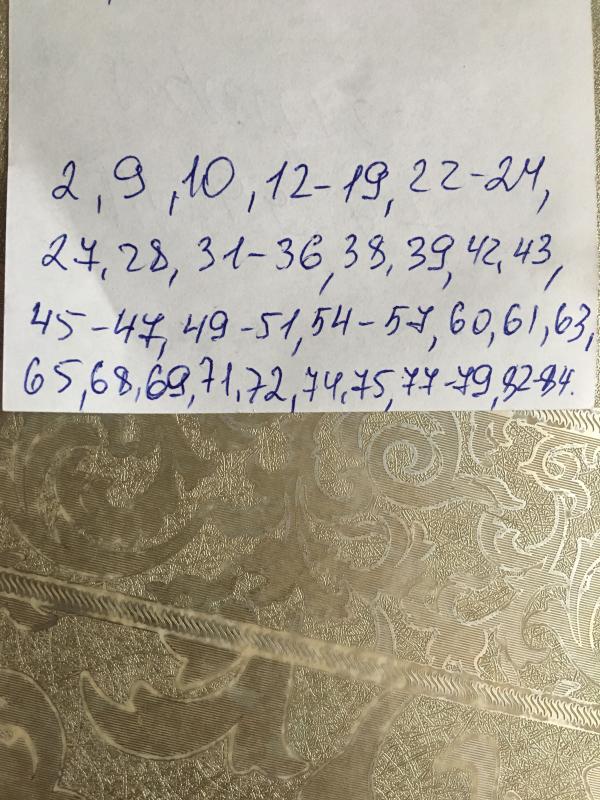 2, 9, 10, 12-19, 22-24,
27, 28, 31-36, 38, 39, 42, 43,
45-47, 49-51, 54-57, 60, 61, 63,
65, 68, 69, 71, 72, 74, 75, 77-79, 82-84.